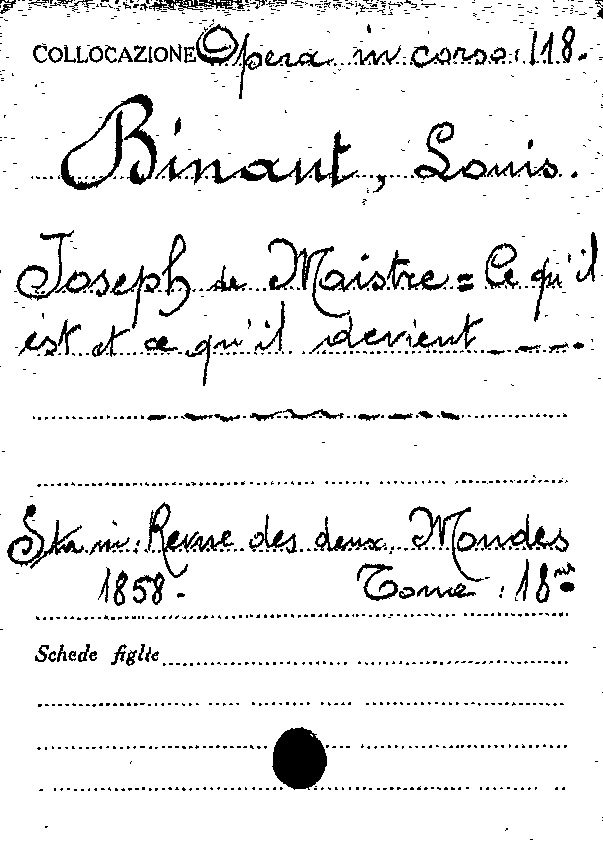 COLLOCAZIONE Opera in corso: 118.
Binaut, Louis.
Joseph de Maistre = Ce qu'il
est et ce qu'il devient ___.
Sta in: Revue des deux Mondes
1858. Tome : 18me
Schede figlie